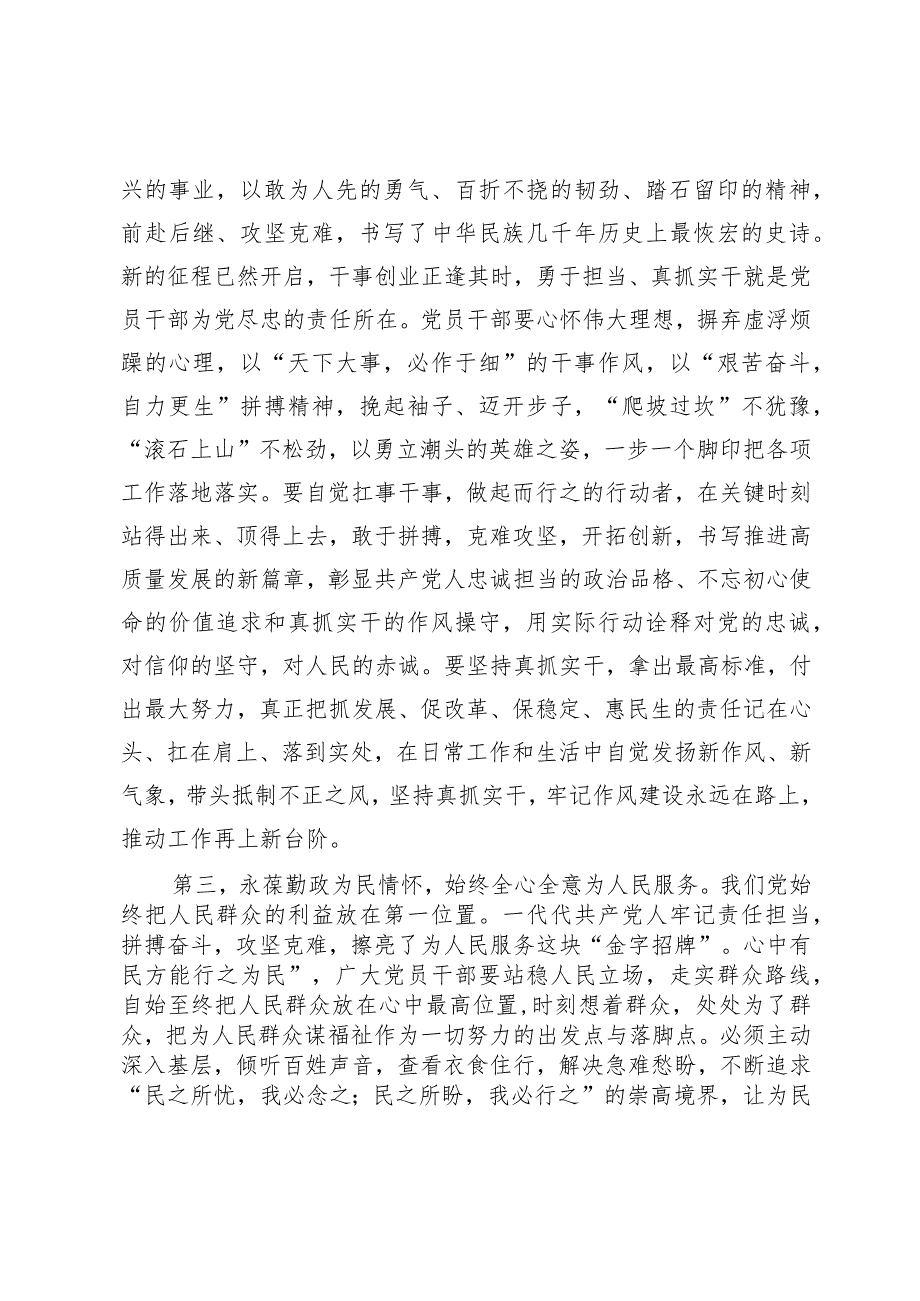 兴的事业，以敢为人先的勇气、百折不挠的韧劲、踏石留印的精神，
前赴后继、攻坚克难，书写了中华民族几千年历史上最恢宏的史诗。
新的征程已然开启，干事创业正逢其时，勇于担当、真抓实干就是党
员干部为党尽忠的责任所在。党员干部要心怀伟大理想，摒弃虚浮烦
躁的心理，以“天下大事，必作于细”的干事作风，以“艰苦奋斗，
自力更生”拼搏精神，挽起袖子、迈开步子，“爬坡过坎”不犹豫，
“滚石上山”不松劲，以勇立潮头的英雄之姿，一步一个脚印把各项
工作落地落实。要自觉扛事干事，做起而行之的行动者，在关键时刻
站得出来、顶得上去，敢于拼搏，克难攻坚，开拓创新，书写推进高
质量发展的新篇章，彰显共产党人忠诚担当的政治品格、不忘初心使
命的价值追求和真抓实干的作风操守，用实际行动诠释对党的忠诚，
对信仰的坚守，对人民的赤诚。要坚持真抓实干，拿出最高标准，付
出最大努力，真正把抓发展、促改革、保稳定、惠民生的责任记在心
头、扛在肩上、落到实处，在日常工作和生活中自觉发扬新作风、新
气象，带头抵制不正之风，坚持真抓实干，牢记作风建设永远在路上，
推动工作再上新台阶。
第三，永葆勤政为民情怀，始终全心全意为人民服务。我们党始
终把人民群众的利益放在第一位置。一代代共产党人牢记责任担当，
拼搏奋斗，攻坚克难，擦亮了为人民服务这块“金字招牌”。心中有
民方能行之为民”，广大党员干部要站稳人民立场，走实群众路线，
自始至终把人民群众放在心中最高位置,时刻想着群众，处处为了群
众，把为人民群众谋福祉作为一切努力的出发点与落脚点。必须主动
深入基层，倾听百姓声音，查看衣食住行，解决急难愁盼，不断追求
“民之所忧，我必念之；民之所盼，我必行之”的崇高境界，让为民